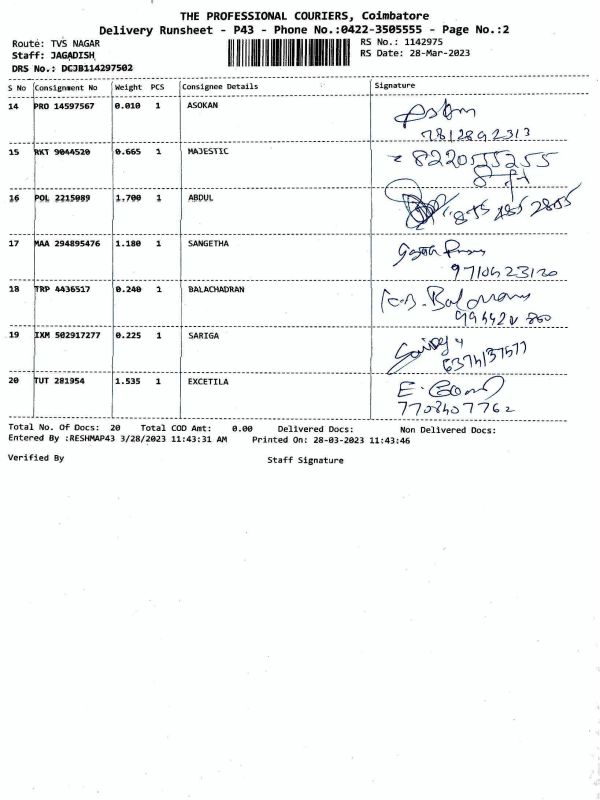 THE PROFESSIONAL COURIERS, Coimbatore
Delivery Runsheet - P43 - Phone No.:0422-3505555 - Page No.:2
Route: TVS NAGAR RS No.: 1142975
Staff: JAGADISH RS Date: 28-Mar-2023
DRS No.: DCJB114297502
S No Consignment No Weight PCS Consignee Details Signature
14 PRO 14597567 0.010 1 ASOKAN
7812892313
15 RKT 9044520 0.665 1 MAJESTIC 8220555255
16 POL 2215089 1.700 1 ABDUL
17 MAA 294895476 1.180 1 SANGETHA
18 TRP 4436517 0.240 1 BALACHADRAN
19 IXM 502917277 0.225 1 SARIGA
20 TUT 281954 1.535 1 EXCETILA
Total No. Of Docs: 20 Total COD Amt: 0.00 Delivered Docs: Non Delivered Docs:
Entered By :RESHMAP43 3/28/2023 11:43:31 AM Printed On: 28-03-2023 11:43:46
Verified By Staff Signature